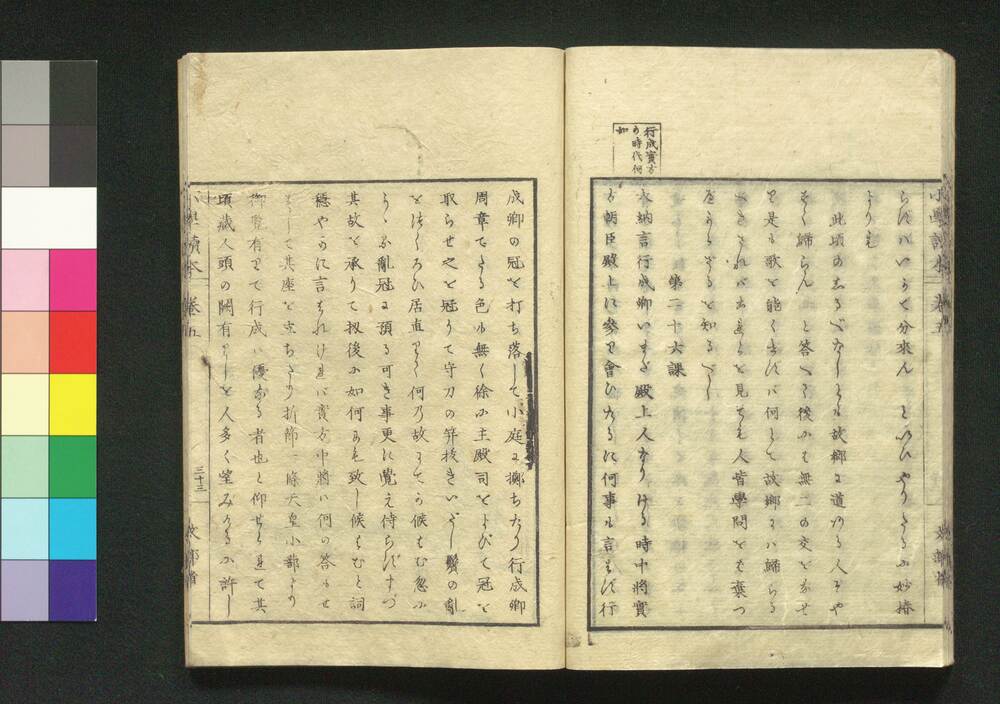 小學讀本 卷五 文部省
らばいかで分來ん といひやりたるに妙椿
より
此頃のしるべなしとも故郷に道ある人ぞや
すく歸らん と答へて後にも無二の交をなせ
り是も歌を能くせずば何とて故郷には歸らる
べきされば
を見ても人皆學問をも棄つ
べからざるを知るべし
第二十六課
行成實方
の時代何
如
大納言行成卿いまだ殿上人なりける時中將實
方朝臣殿上に參り會ひたるに何事も言はず行
成卿の冠を打ち落して小庭に擲ちたり行成卿
周章てたる色も無く徐に主殿司をよびて冠を
取らせ之を冠りて守刀の笄拔きいだし鬢の亂
をつくろひ居直りて何の故にてか候はむ忽に
かゝる亂冠に預る可き事更に覺え侍らずまづ
其故を承りて扨後に如何にも致し候はむと詞
穩やかに言はれければ實方中將は何の答もせ
ずして其座を立ちたり折節一條天皇小蔀より
御覽有りて行成は優なる者也と仰せられて其
頃藏人頭の闕有りしを人多く望みけるに許し
小學讀本 卷五 三十三 文部省